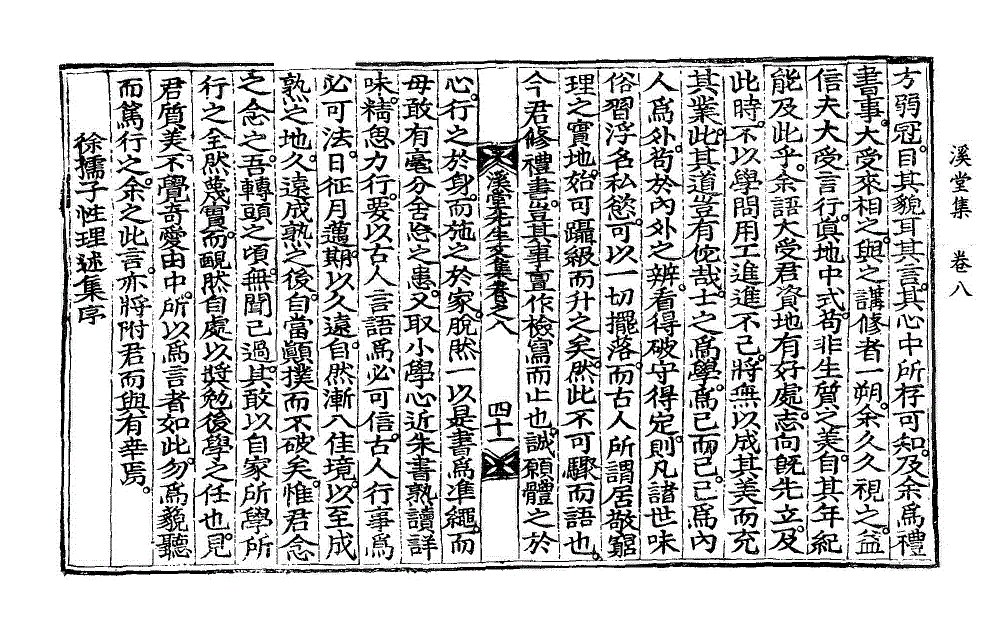 溪堂集 卷八
方弱冠目其貌耳其言其心中所存可知及余爲禮
書事大受來相之與之講修者一朔余久久視之益
信夫大受言行眞地中式苟非生質之美自其年紀
能及此乎余語大受君資地有好處志向旣先立及
此時不以學問用工進進不已將無以成其美而充
其業此其道豈有佗哉士之爲學爲己而已己爲內
人爲外苟於內外之辨看得破守得定則凡諸世味
俗習浮名私慾可以一切擺落而古人所謂居敬窮
理之實地始可躡級而升之矣然此不可驟而語也
今君修禮書豈其事亶作檢寫而止也誠願體之於
溪堂先生文集卷之八 四十一
心行之於身而施之於家脫然一以是書爲準繩而
母敢有毫分舍忽之患又取小學心近朱書熟讀詳
味精思力行要以古人言語爲必可信古人行事爲
必可法日征月邁期以久遠自然漸入佳境以至成
熟之地久遠成熟之後自當顚撲而不破矣惟君念
之念之吾轉頭之頃無聞己過其敢以自家所學所
行之全然蔑實而靦然自處以奬勉後學之任也見
君質美不覺奇愛由中所以爲言者如此勿爲藐聽
而篤行之余之此言亦將附君而與有幸焉
徐孺子性理述集序